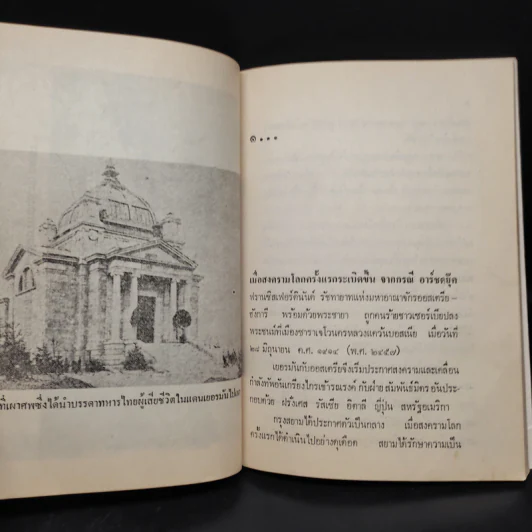 ที่เผาศพซึ่งได้นำบรรดาทหารไทยผู้เสียชีวิตในแดนเยอรมันไป
๑...
เมื่อสงครามโลกครั้งแรกระเบิดขึ้น จากกรณี อาร์ชดยุ๊ค
ฟรานซิสเฟอร์ดินันด์ รัชทายาทแห่งมหาอาณาจักรออสเตรีย-
ฮังการี พร้อมด้วยพระชายา ถูกคนร้ายชาวเซอร์เบียปลง
พระชนม์ที่เมืองซาราเจโวนครหลวงแคว้นบอสเนีย เมื่อวันที่
๒๘ มิถุนายน ค.ศ. ๑๙๑๔ (พ.ศ. ๒๔๕๗)
เยอรมันกับออสเตรียจึงเริ่มประกาศสงครามและเคลื่อน
กำลังทัพอันเกรียงไกรเข้ารณรงค์ กับฝ่ายสัมพันธ์มิตร อันประ-
กอบด้วย ฝรั่งเศส รัสเซีย อิตาลี ญี่ปุ่น สหรัฐอเมริกา
กรุงสยามได้ประกาศตัวเป็นกลาง เมื่อสงครามโลก
ครั้งแรกได้ดำเนินไปอย่างดุเดือด สยามได้รักษาความเป็น